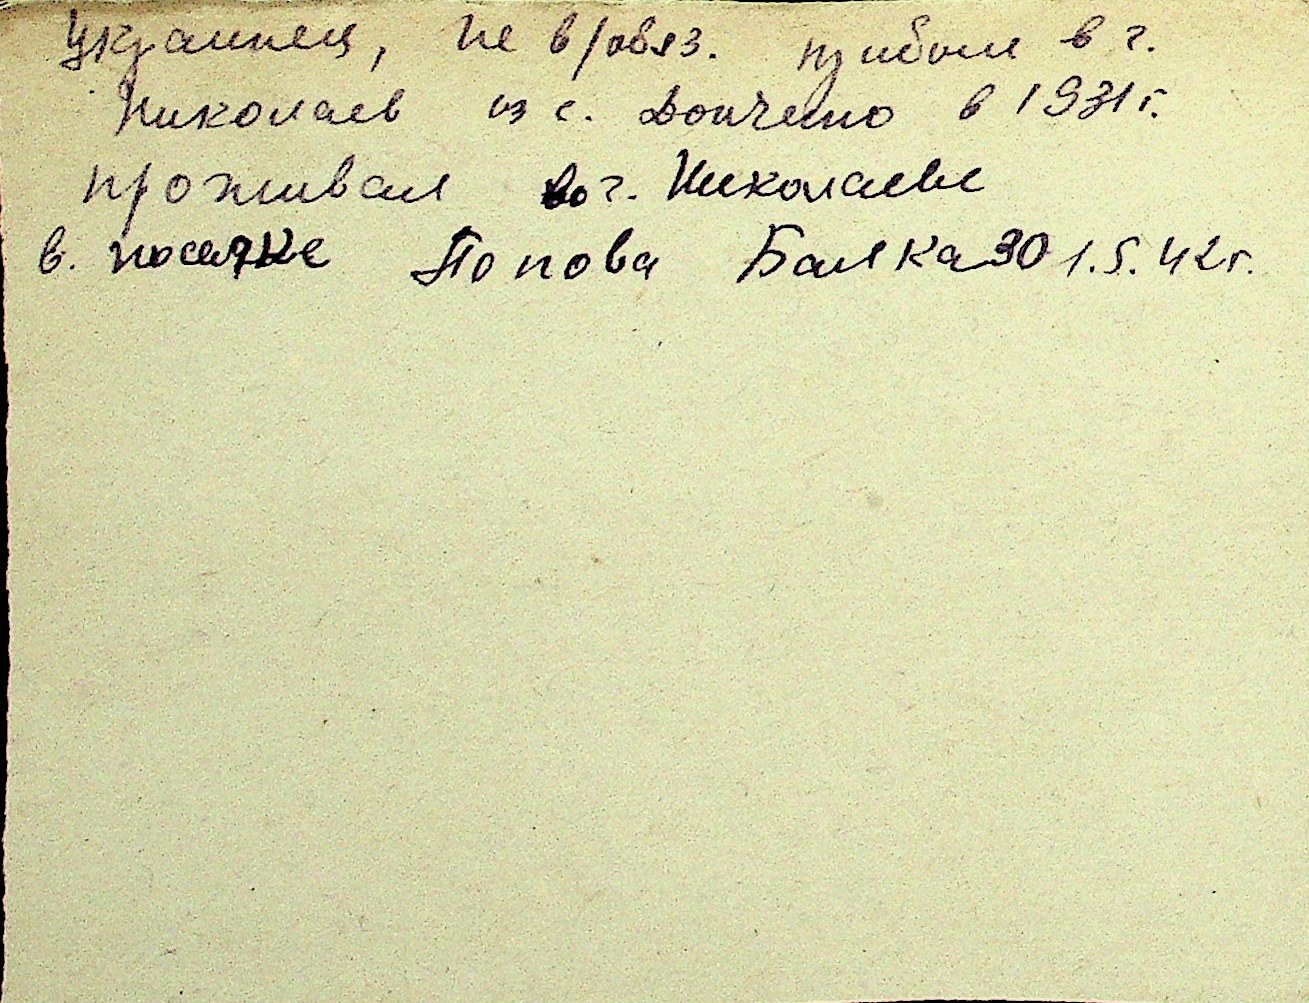 Украинец, не в/обяз. прибыл в г.
Николаев из с. в 1931 г.
проживал г. Николаеве
в. поселке Попова Балка 30 1.5.42 г.